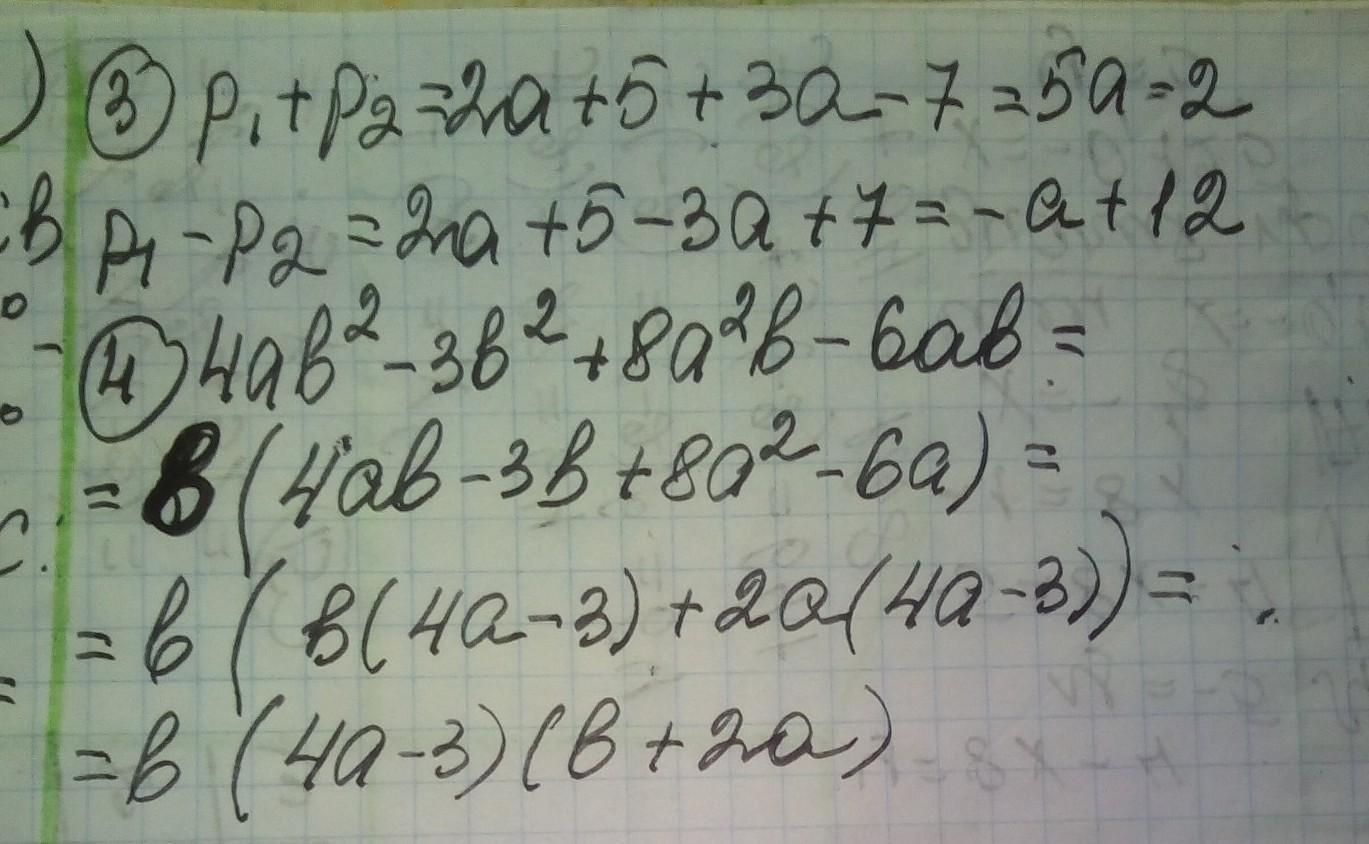 ③ p₁ + p₂ = 2a + 5 + 3a - 7 = 5a = 2
p₁ - p₂ = 2a + 5 - 3a + 7 = - a + 12
④ 4ab² - 3b² + 8a²b - 6ab =
= b (4ab - 3b + 8a² - 6a) =
= b ( b(4a - 3) + 2a(4a - 3)) =
= b (4a - 3)(b + 2a)